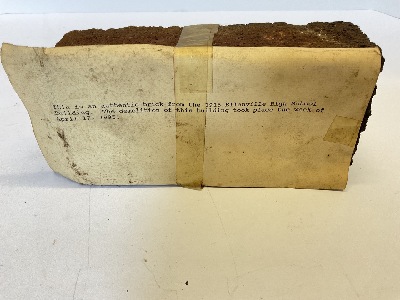 This is an authentic brick from the 1915 Ellenville High School
Building. The demolition of this building took place the week of
April 17,